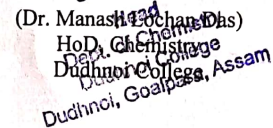 (Dr. Manash Lochan Das)
HoD, Chemistry
Dudhnoi College
Head
Dept. of Chemistry
Dudhnoi College
Dudhnoi, Goalpara, Assam